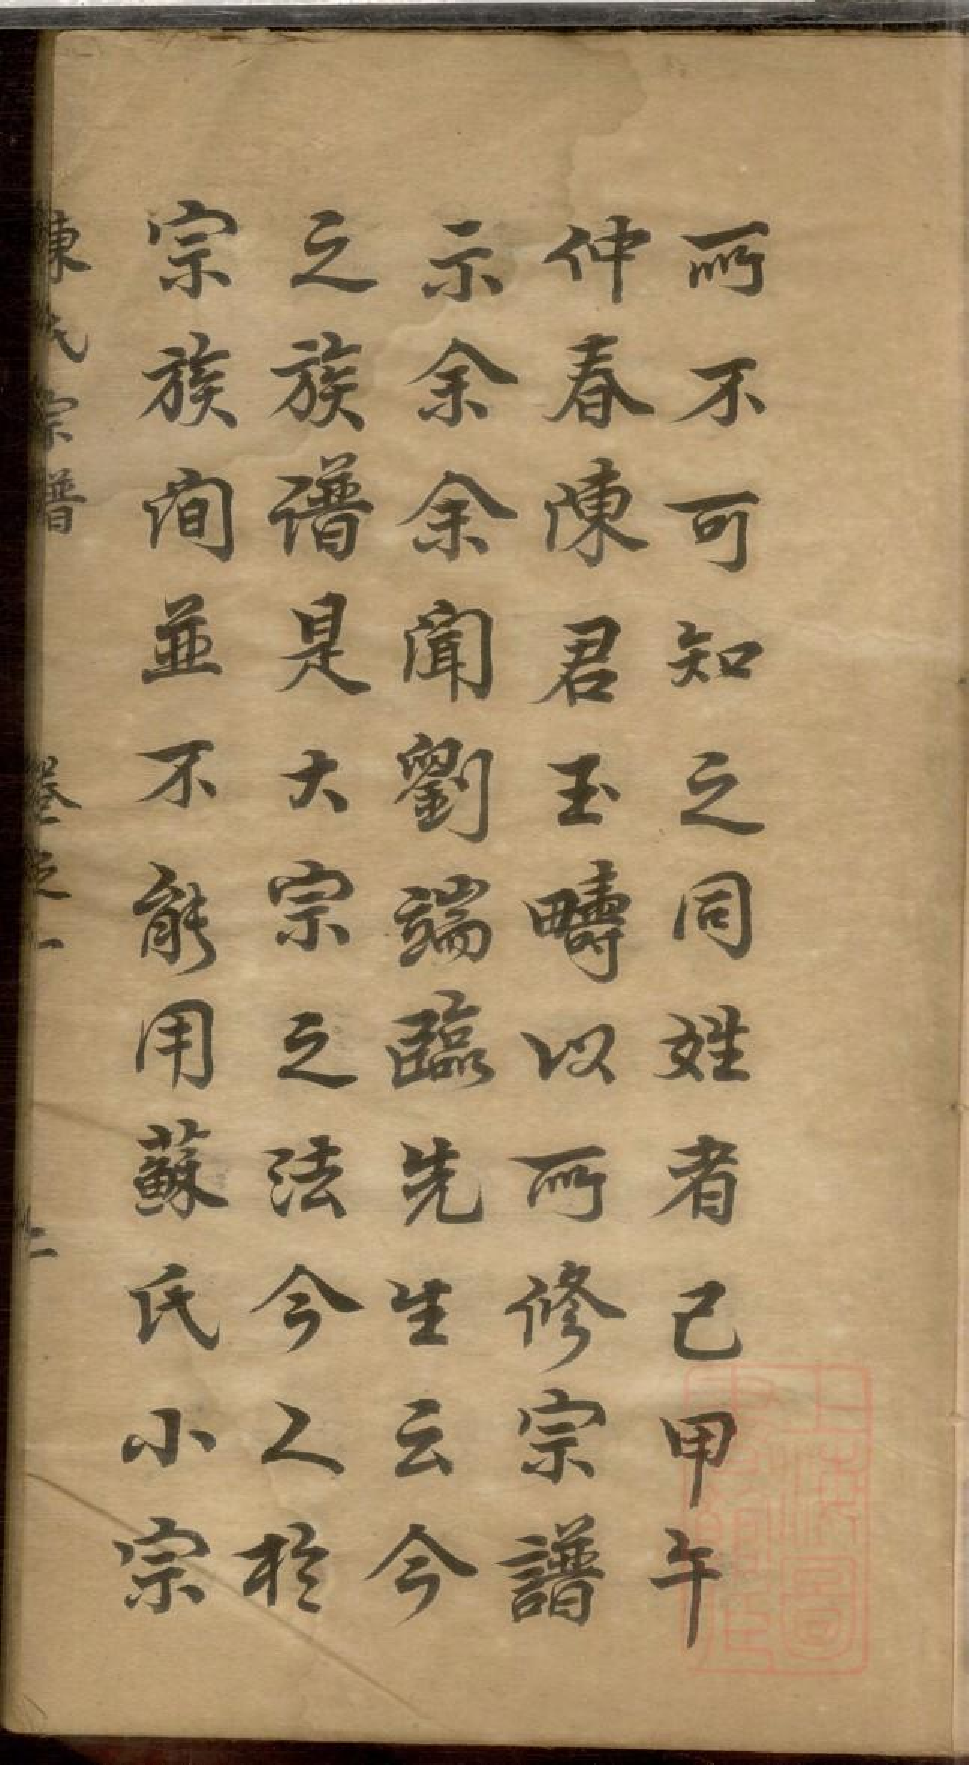 所不可知之同姓者已甲午
仲春陳君玉疇以所修宗譜
示余余聞劉端臨先生云今
之族譜是大宗之法今人於
宗族間並不能用蘇氏小宗
陳氏宗譜 卷之一 二
上海圖書館藏